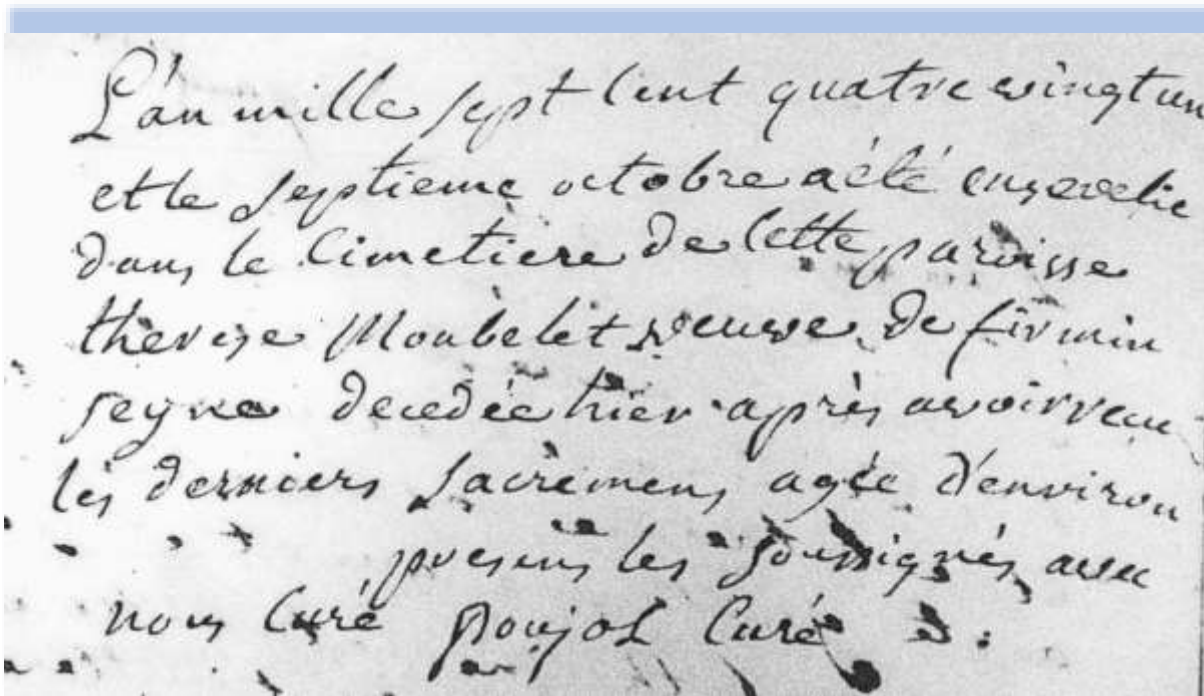 L'an mille sept cent quatre vingt un
et le septieme octobre a été ensevelie
dans le Cimetiere de cette paroisse
therese Moubelet veuve de firmin
seyne decedée hier après avoir reçu
les derniers sacremens agée d'environ
presens les soussignés avec
nous Curé Poujol Curé